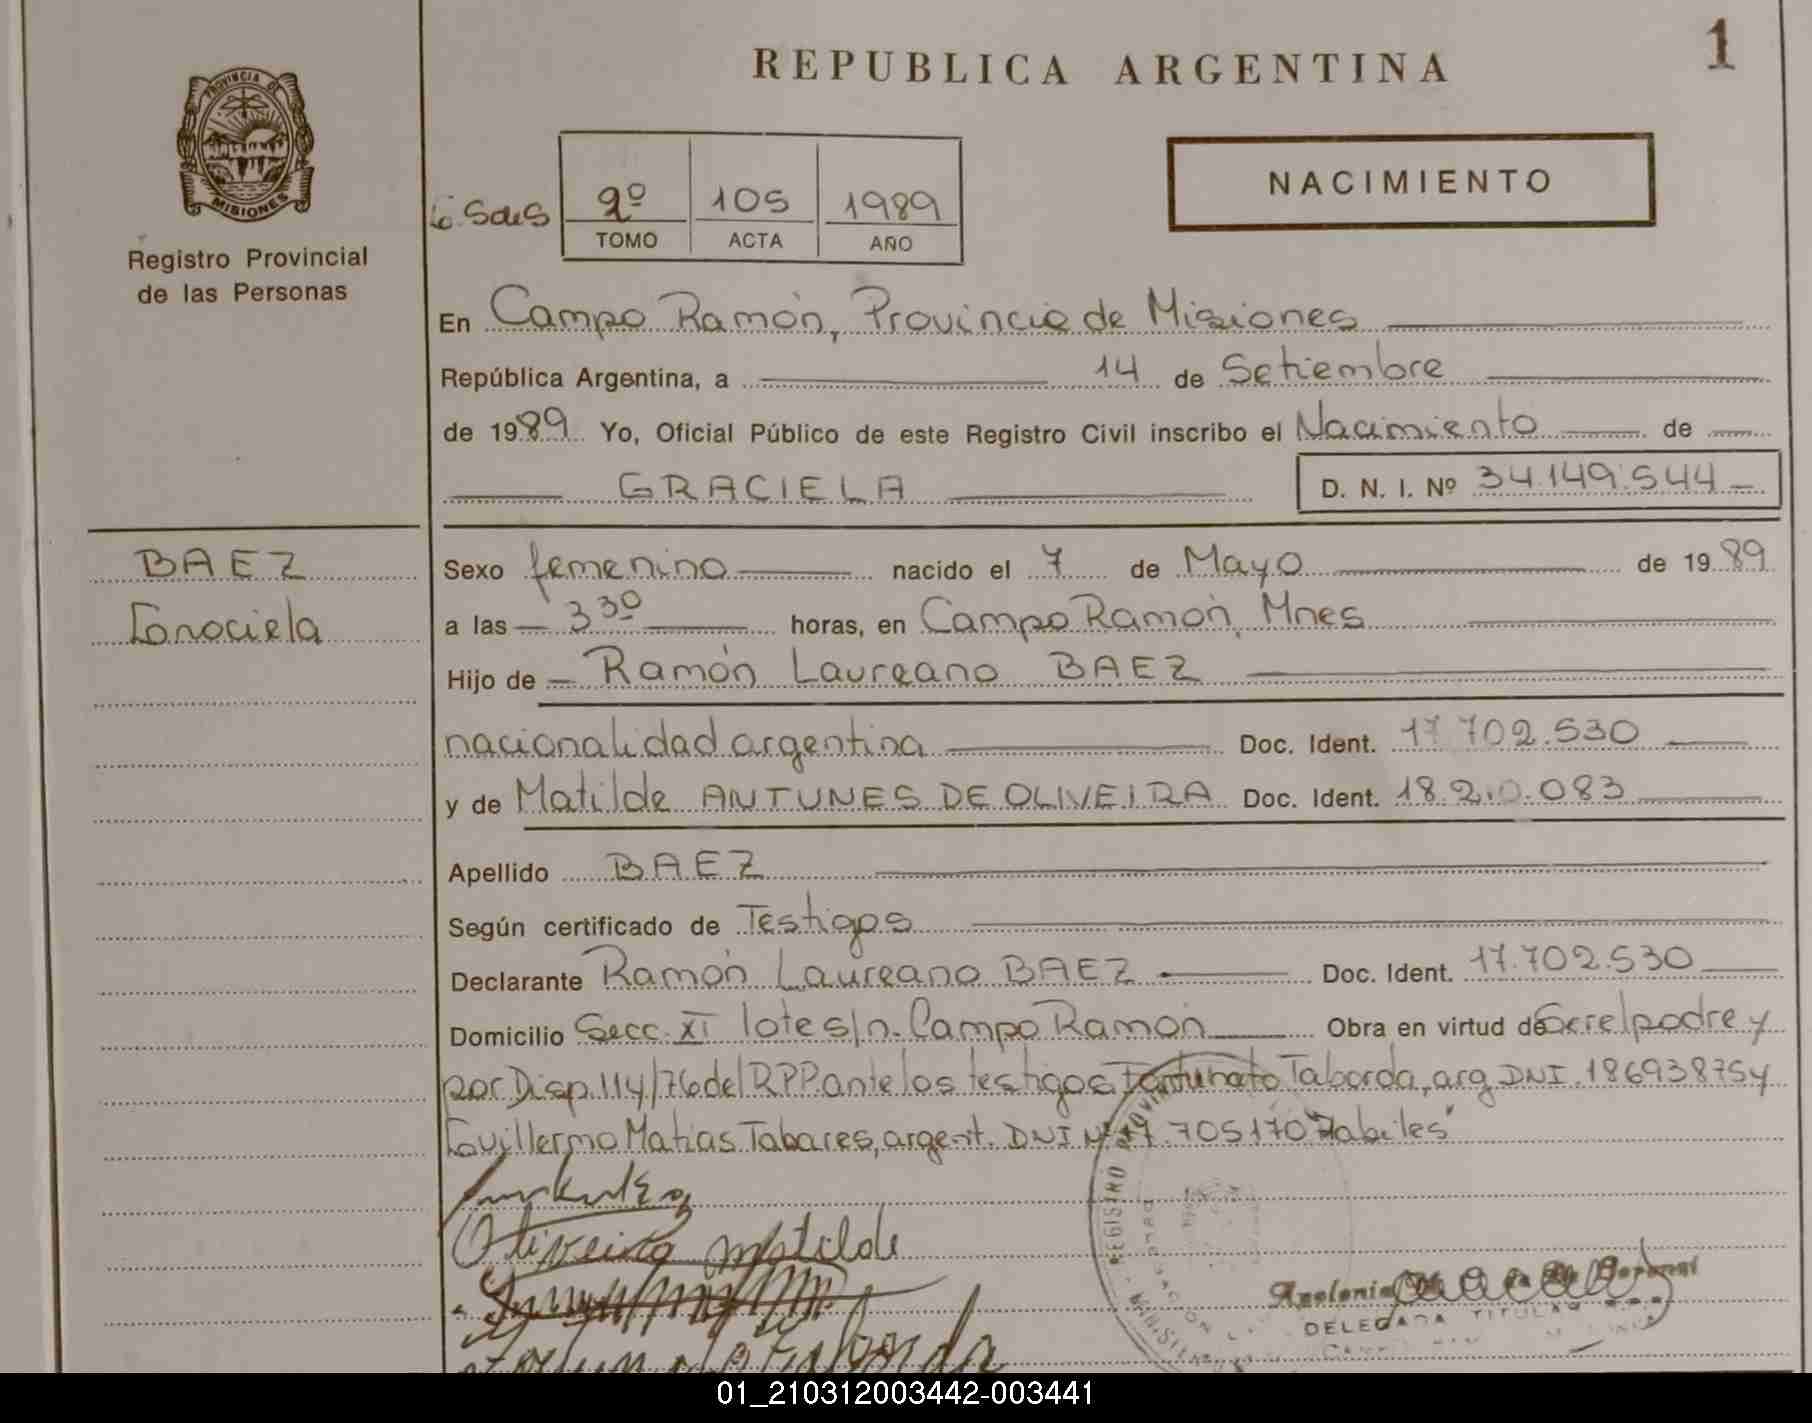 REPUBLICA ARGENTINA
1
PROVINCIA DE
MISIONES
Registro Provincial
de las Personas
NACIMIENTO
2º 105 1989
TOMO ACTA AÑO
En Campo Ramón, Provincia de Misiones
República Argentina, a 14 de Setiembre
de 1989 Yo, Oficial Público de este Registro Civil inscribo el Nacimiento de
GRACIELA D. N. I. Nº 34.149.544
BAEZ
Graciela
Sexo femenino nacido el 7 de Mayo de 1989
a las 3 30 horas, en Campo Ramón, Mnes
Hijo de Ramón Laureano BAEZ
nacionalidad argentina Doc. Ident. 17.702.530
y de Matilde ANTUNES DE OLIVEIRA Doc. Ident. 18.210.083
Apellido BAEZ
Según certificado de Testigos
Declarante Ramón Laureano BAEZ Doc. Ident. 17.702.530
Domicilio Secc. XI lote s/n. Campo Ramón Obra en virtud de Ser el padre y
por Disp. 114/76 del RPP. ante los testigos Fortunato Taborda, arg. DNI. 18693875 y
Guillermo Matias Tabares, argent. DNI Nº 17.705170 "habiles"
Oliveira Matilde
REGISTRO PROVINCIAL
DELEGADA TITULAR
01_210312003442-003441